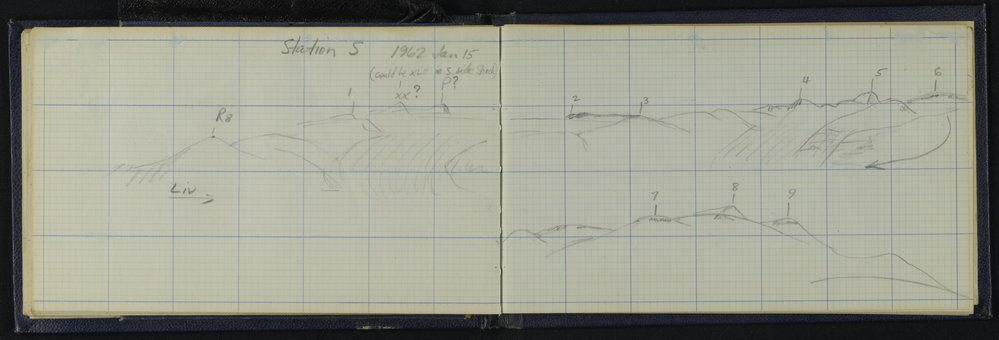 Station 5 1962 Jan 15
(could be XLII on S side
xx? P?
R8 1
Liv
2 3 4 5 6
7 8 9